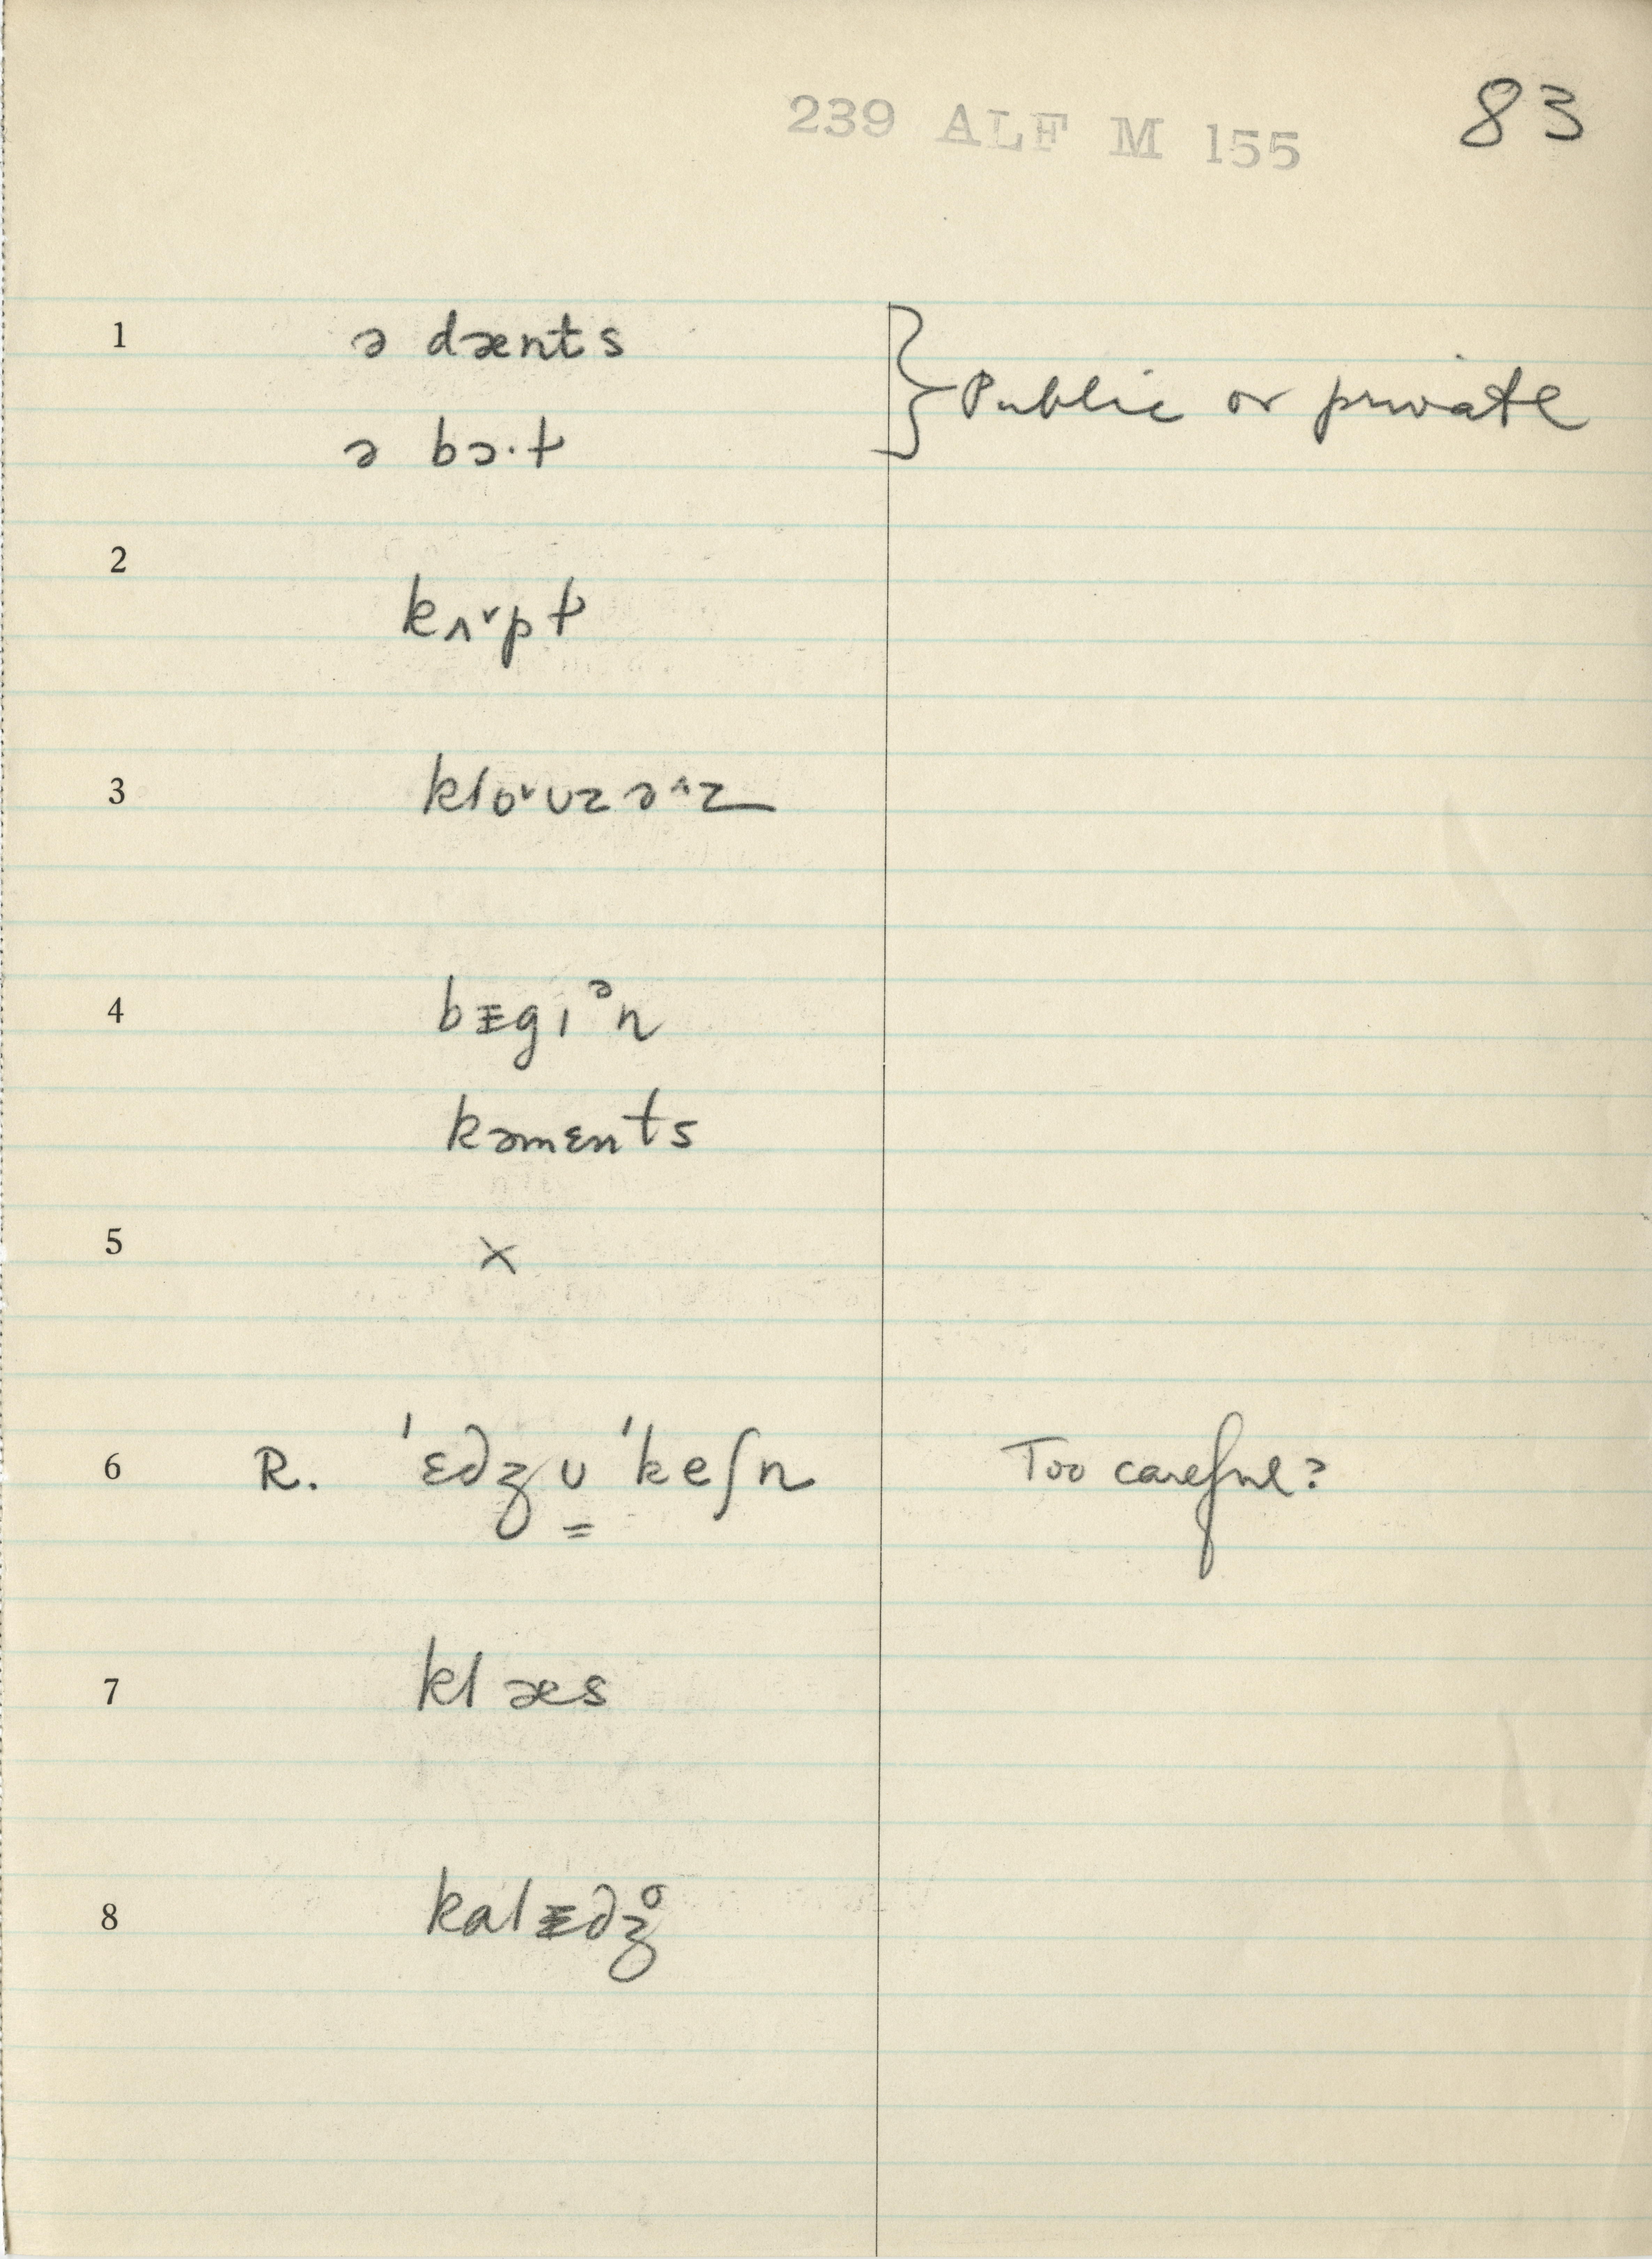 239 ALF M 155 83
1 ə dænts } Public or private
ə bɔ·t
2
kʌ˅pt
3 klo˅ʊzə˄z
4 bᵻgɪᵊn
kəmɛnts
5 ×
6 R. ˈɛdʒʊ̳ˈkeʃn Too careful?
7 klæs
8 kalᵻdʒ̊